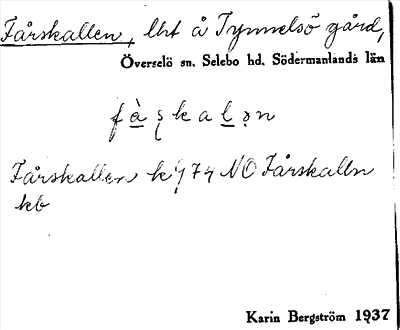 Fårskallen, lht å Tynnelsö gård,
Överselö sn. Selebo hd. Södermanlands län
fàs̨kalən
Fårskallen k 74 NO Fårskalln
kb
Karin Bergström 1937